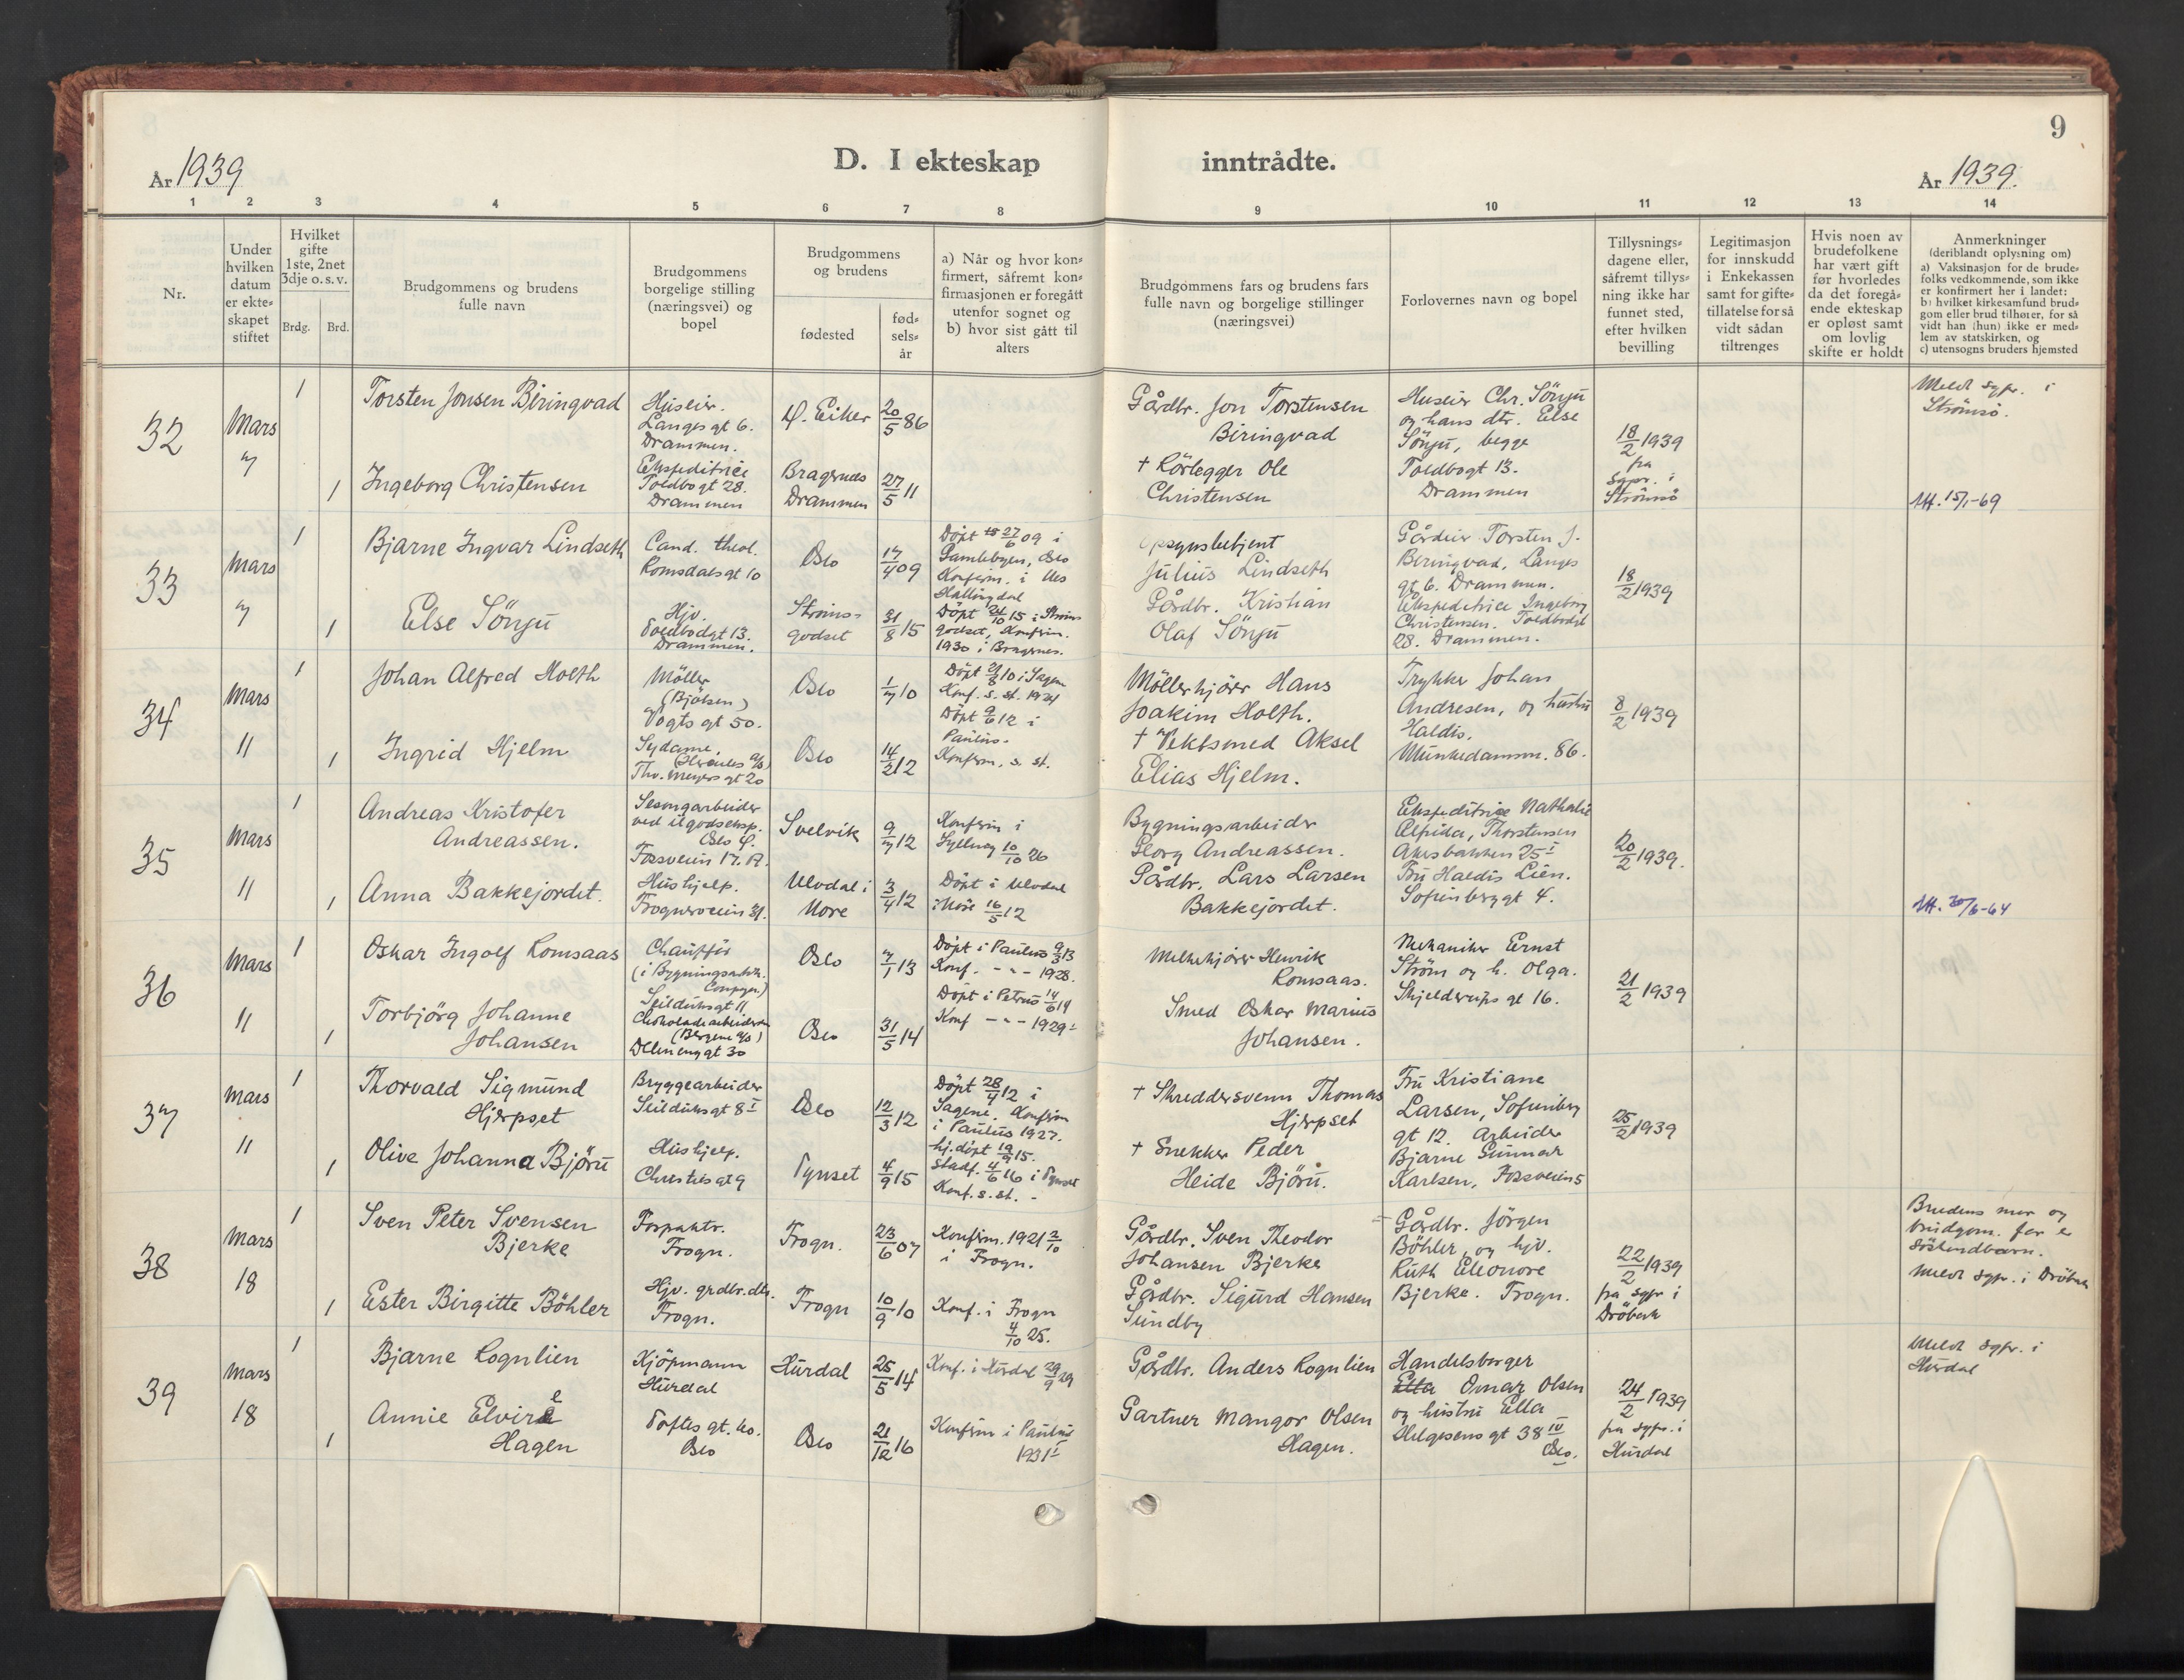 9
D. I ekteskap inntrådte.
År 1939
År 1939.
1 2 3 4 5 6 7 8 9 10 11 12 13 14
Nr.
Under
hvilken
datum
er ekte-
skapet
stiftet
Hvilket
gifte
1ste, 2net
3dje o. s. v.
Brdg.
Brd.
Brudgommens og brudens
fulle navn
Brudgommens
borgelige stilling
(næringsvei) og
bopel
Brudgommens
og brudens
fødested
fød-
sels-
år
a) Når og hvor kon-
firmert, såfremt kon-
firmasjonen er foregått
utenfor sognet og
b) hvor sist gått til
alters
Brudgommens fars og brudens fars
fulle navn og borgelige stillinger
(næringsvei)
Forlovernes navn og bopel
Tillysnings-
dagene eller,
såfremt tillys-
ning ikke har
funnet sted,
efter hvilken
bevilling
Legitimasjon
for innskudd
i Enkekassen
samt for gifte-
tillatelse for så
vidt sådan
tiltrenges
Hvis noen av
brudefolkene
har vært gift
før hvorledes
da det foregå-
ende ekteskap
er opløst samt
om lovlig
skifte er holdt
Anmerkninger
(deriblandt oplysning om)
a) Vaksinasjon for de brude-
folks vedkommende, som ikke
er konfirmert her i landet;
b) hvilket kirkesamfund brud-
gom eller brud tilhører, for så
vidt han (hun) ikke er med-
lem av statskirken, og
c) utensogns bruders hjemsted
32
Mars
7
1
Torsten Jonsen Biringvad
Huseier.
Langes gt 6.
Drammen.
Ø. Eiker
20/5 86
Gårdbr. Jon Torstensen
Biringvad
Huseier Chr. Sönju
og hans dtr. Else
Sönju, begge
Toldbogt 13.
Drammen
18/2 1939
fra
Sgpr. i
Strömsö
Meldt sgpr. i
Strömsö.
1
Ingeborg Christensen
Ekspeditrice
Toldbogt 28.
Drammen
Bragernes
Drammen
27/5 11
† Rörlegger Ole
Christensen
15/1-69
33
Mars
7
1
Bjarne Ingvar Lindseth
Cand. theol.
Romsdalsgt 10
Oslo
17/4 09
Döpt 27/6 09 i
Gamlebyen, Oslo
Konfirm. i Nes
Hallingdal
opsynsbetjent
Julius Lindseth
Gårdeier Torsten J.
Biringvad, Langes
gt 6. Drammen.
Ekspeditrice Ingeborg
Christensen. Toldbodgt
28. Drammen.
18/2 1939
1
Else Sönju
Hjv.
Toldbodgt 13.
Drammen.
Ströms-
godset
31/8 15
Döpt 24/10 15 i Ströms
godset, Konfirm.
1930 i Bragernes.
Gårdbr. Kristian
Olaf Sönju
34
Mars
11
1
Johan Alfred Holth
Möller
(Bjölsen)
Vogts gt 50.
Oslo
1/7 10
Döpt 21/8 10 i Sagene
Konf. s. st. 1924
Möllerkjörer Hans
Joakim Holth.
Trykker Johan
Andresen, og hustru
Haldis.
Munkedammv. 86.
8/2 1939
1
Ingrid Hjelm
Sydame.
(Hercules A/S)
Thv. Meyers gt 20
Oslo
14/2 12
Döpt 9/6 12 i
Paulus.
Konfirm. s. st.
† Vektsmed Aksel
Elias Hjelm.
35
Mars
11
1
Andreas Kristofer
Andreassen.
Sesongarbeider
ved ilgodseksp.
Oslo Ö.
Fossveien 17. A.
Svelvik
9/7 12
Konfirm i
10/10 26
Bygningsarbeider
Georg Andreassen.
Ekspeditrice Nathalie
Alfida, Thorstensen
Akersbakken 25 I
Fru Haldis Lien.
Sofienberggt 4.
20/2 1939.
1
Anna Bakkejordet.
Hushjelp.
Frognerveien 31.
Uvdal i
Nore
3/4 12
Döpt i Uvdal
i Nore 16/5 12
Gårdbr. Lars Larsen
Bakkejordet.
30/6-64
36
Mars
11
1
Oskar Ingolf Romsaas
Chaufför
(i Bygningsartik.
Compgn.)
Seilduksgt 11
Oslo
7/1 13
Döpt i Paulus 9/3 13
Konf. - " - 1928.
Melkekjörer Henrik
Romsaas.
Mekaniker Ernst
Ström og h. Olga.
Skjelderups gt 16.
21/2 1939
1
Torbjörg Johanne
Johansen
Chokoladearbeiderske
(Bergene A/S)
Dælenenggt 30
Oslo
31/5 14
Döpt i Petrus 14/6 14
Konf - " - 1929
Smed Oskar Marius
Johansen.
37
Mars
11
1
Thorvald Sigmund
Hjerpset
Bryggearbeider
Seilduksgt 8 I
Oslo
12/3 12
Döpt 28/4 12 i
Sagene. Konfirm
i Paulus 1927.
† Skreddersvenn Thomas
Hjerpset
Fru Kristiane
Larsen, Sofienberg
gt 12. Arbeider
Bjarne Gunnar
Karlsen, Fossveien 5
25/2 1939
1
Olive Johanna Björu
Hushjelp.
Christies gt 9
Tynset
4/9 15
hj. döpt 19/9 15.
Stadf. 4/6 16 i Tynset
Konf. s. st. -
† Snekker Peder
Heide Björu.
38
Mars
18
1
Sven Peter Svensen
Bjerke
Forpaktr.
Frogn.
Frogn.
23/6 07
Konfirm. 1921 2/10
i Frogn.
Gårdbr. Sven Theodor
Johansen Bjerke
Gårdbr. Jörgen
Böhler, og hjv.
Ruth Eleonore
Bjerke. Frogn.
22/2 1939
fra sgpr i
Dröbak
Brudens mor og
brudgom. far er
söskendbarn.
Meldt sgpr. i Dröbak
1
Ester Birgitte Böhler
Hjv. grdbr. dtr.
Frogn.
Frogn
10/9 10
Konf. i Frogn
4/10 25.
Gårdbr. Sigurd Hansen
Sundby
39
Mars
18
1
Bjarne Rognlien
Kjöpmann
Hurdal
Hurdal
25/5 14
Konf. i Hurdal 29/9 29
Gårdbr. Anders Rognlien
Handelsborger
Ella Omar Olsen
og hustru Ella
Helgesens gt 38 IV
Oslo.
24/2 1939
fra sgpr. i
Hurdal
Meldt sgpr. i
Hurdal
1
Annie Elvire
Hagen
Toftes gt. 60.
Oslo
Oslo
21/12 16
Konfirm i Paulus
1931
Gartner Mangor Olsen
Hagen.